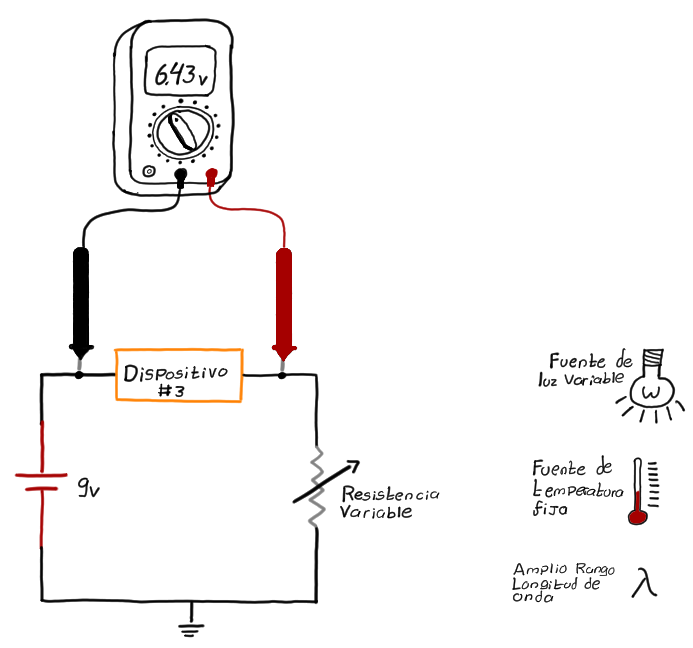 6.43v
Dispositivo
#3
9v
Resistencia
Variable
Fuente de
luz Variable
w
Fuente de
temperatura
fija
Amplio Rango
Longitud de
onda
λ